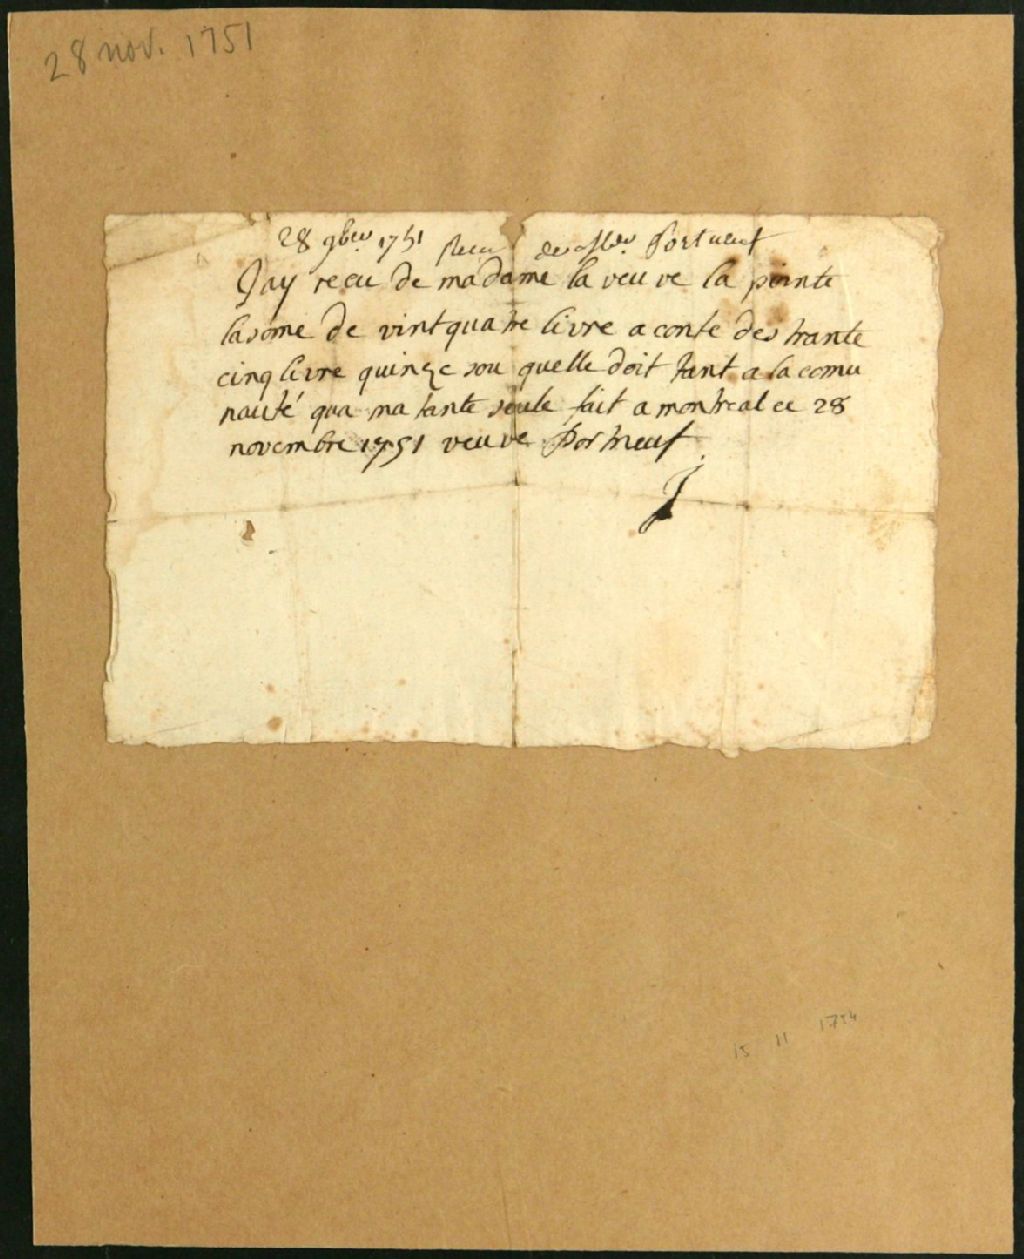 28 nov. 1751
28 9bre 1751 Recu de Mde Portneuf
Jay recu de madame la veuve la pointe
la some de vint quatre livre a conte des trante
cinq livre quinze sou quelle doit tant a la comu
nauté qua ma tante seule fait a montreal ce 28
novembre 1751 veuve Portneuf
15 11